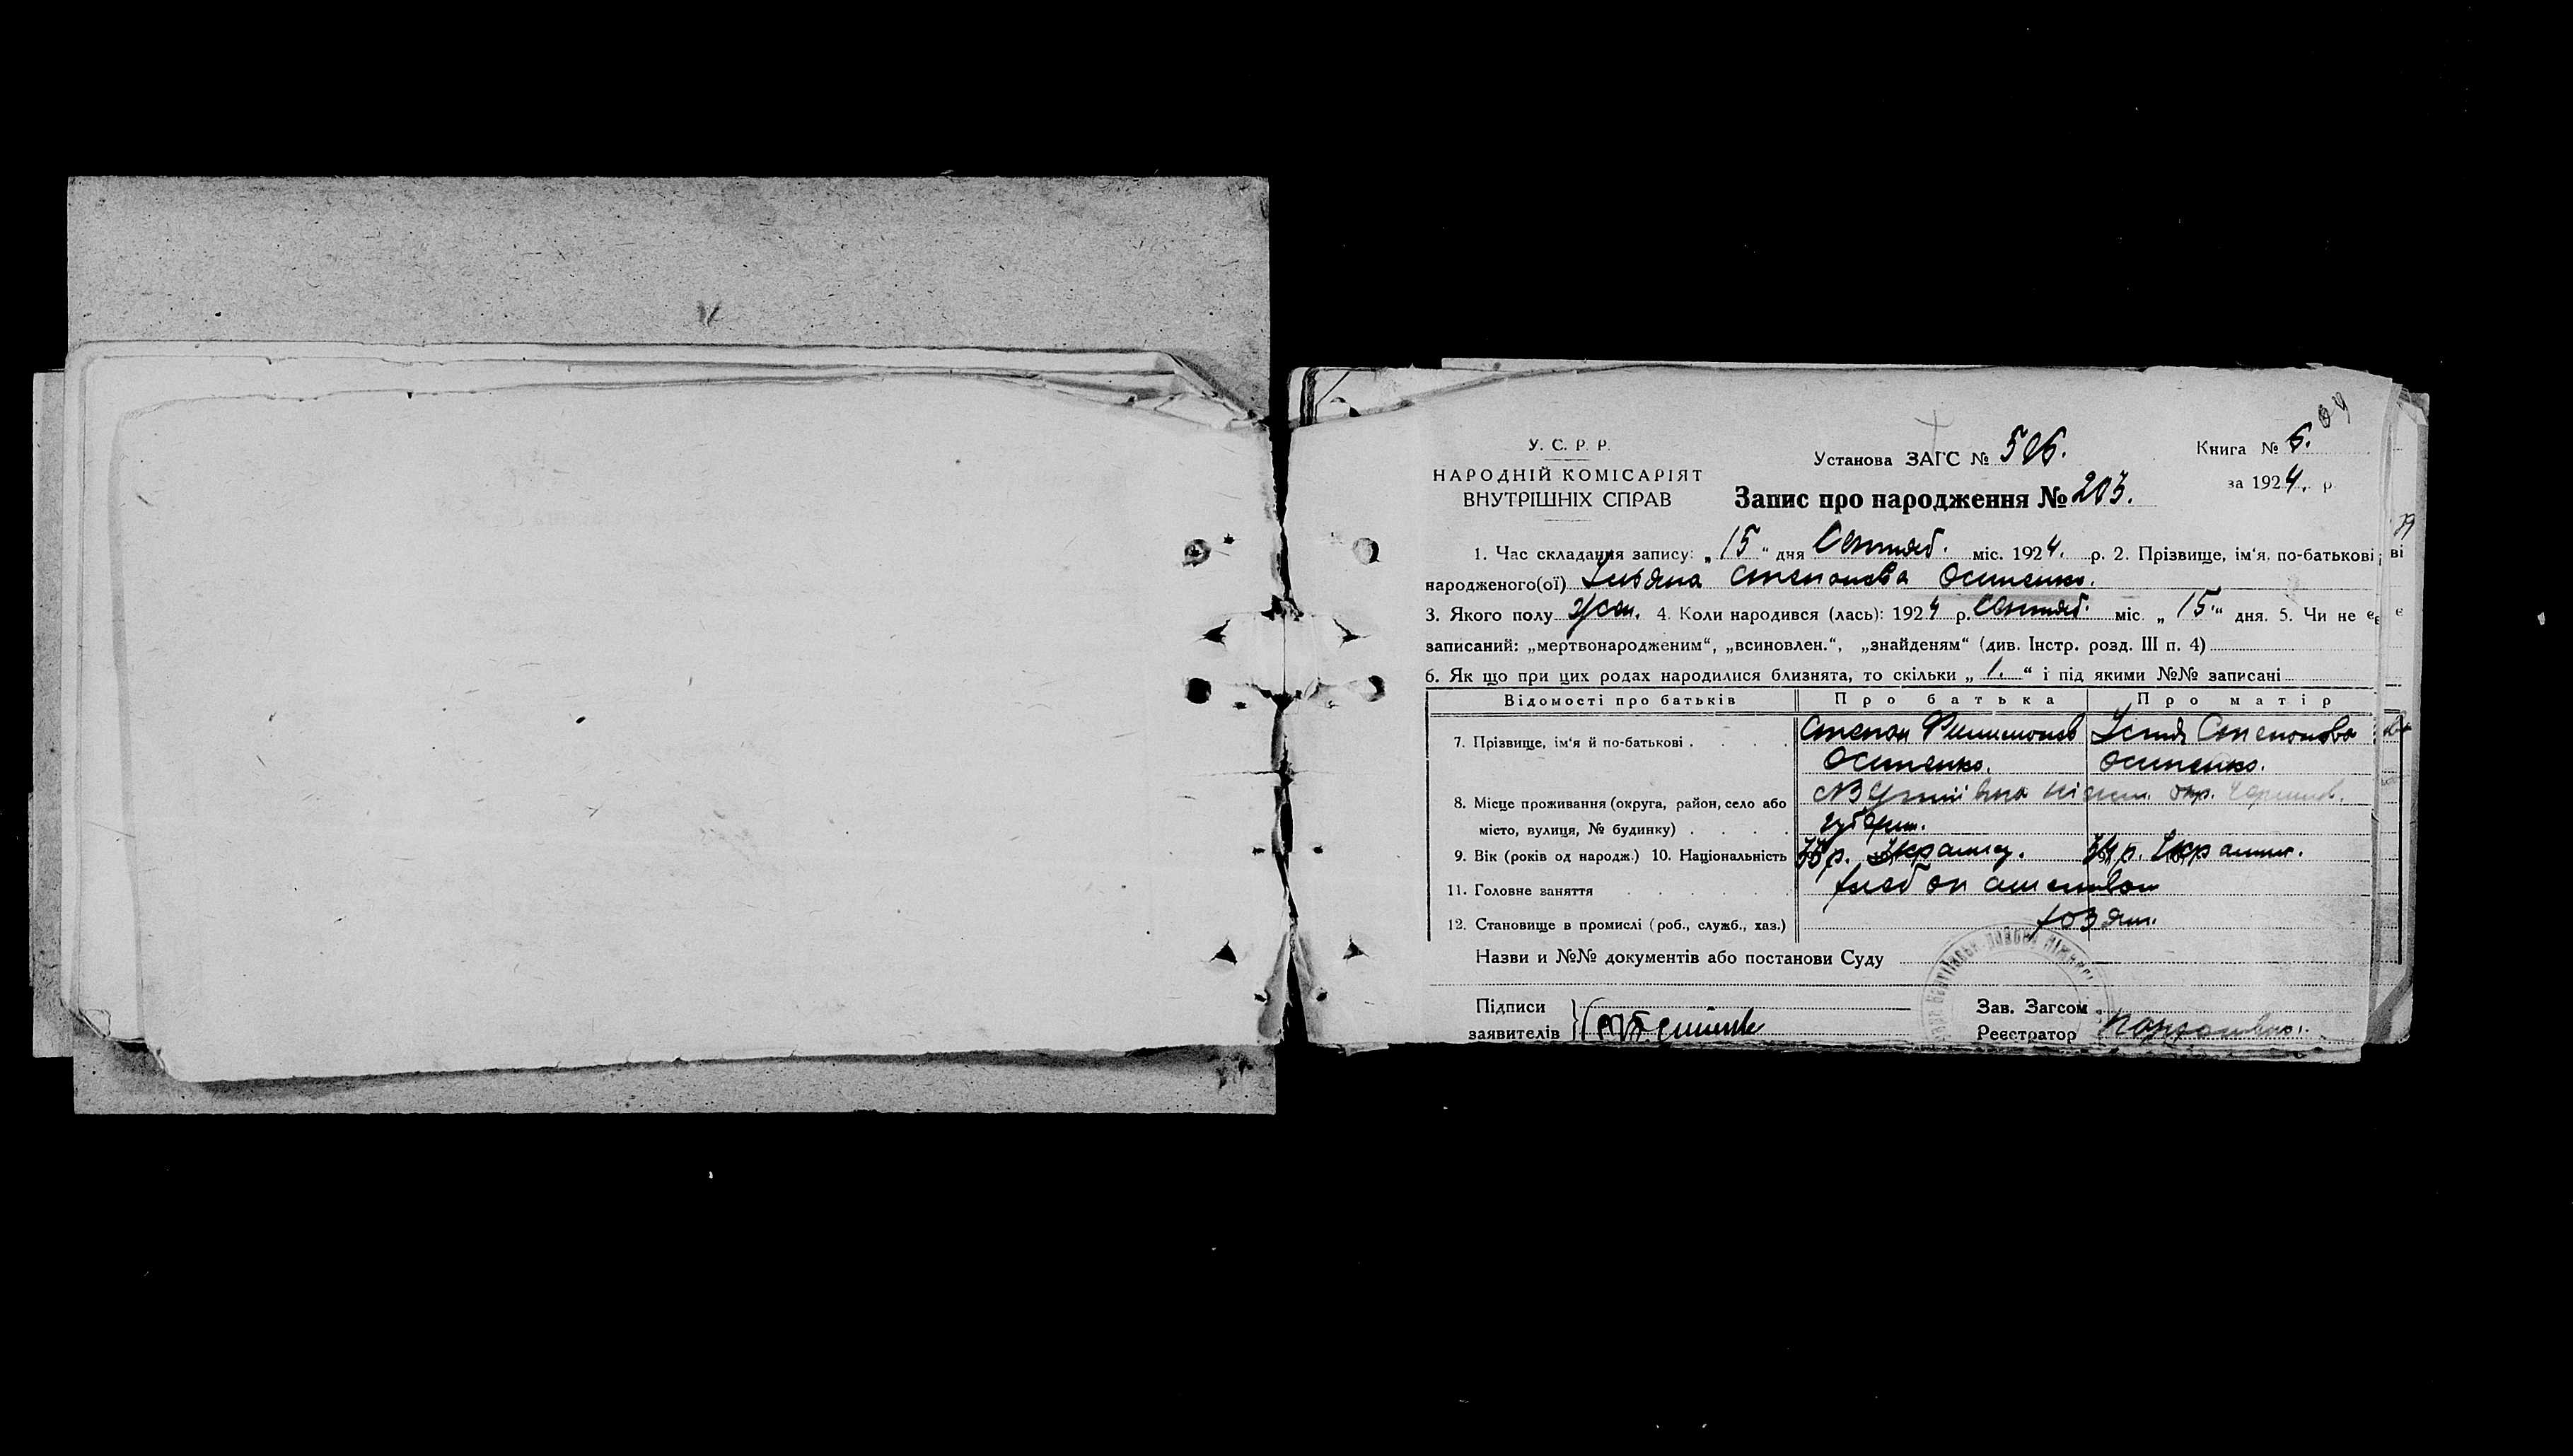 У. С. Р. Р.
НАРОДНІЙ КОМІСАРІЯТ
ВНУТРІШНІХ СПРАВ
Установа ЗАГС № 506.
Книга № 6.
за 1924. р.
Запис про народження № 203.
1. Час складання запису: „15“ дня Сентяб. міс. 1924. р. 2. Прізвище, ім'я, по-батькові
народженого(ої) Степанова Осипенко.
3. Якого полу жен. 4. Коли народився (лась): 1924 р. Сентяб. міс. „15“ дня. 5. Чи не є
записаний: „мертвонародженим“, „всиновлен.“, „знайденям“ (див. Інстр. розд. III п. 4)
6. Як що при цих родах народилися близнята, то скільки „1.“ і під якими №№ записані
Відомості про батьків Про батька Про матір
7. Прізвище, ім'я й по-батькові . . . . Степан Филимонов Устя Степанова
Осипенко. Осипенко.
8. Місце проживання (округа, район, село або Ніжин. окр. Черниг.
місто, вулиця, № будинку) . . . . губерн.
9. Вік (років од народж.) 10. Національність р. Украинец. 34 р. Украин.
11. Головне заняття . . . . . . хлебопашеством
12. Становище в промислі (роб., служб., хаз.) хозяин.
Назви и №№ документів або постанови Суду
Підписи
заявителів
Зав. Загсом
Реєстратор